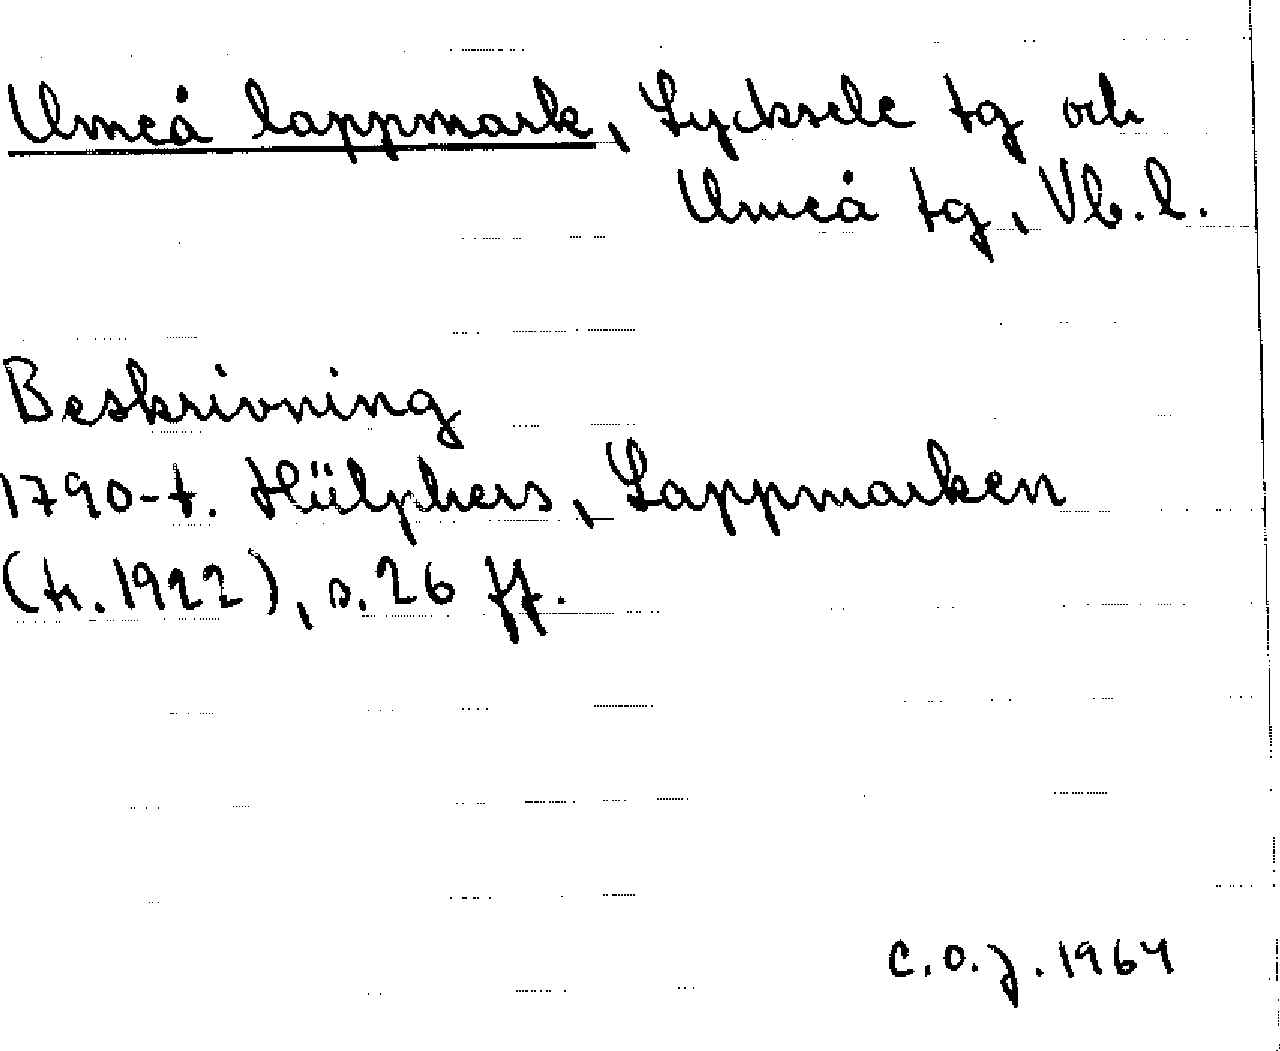 Umeå lappmark, Lycksele tg och
Umeå tg, Vb.l.
Beskrivning
1790-t. Hülphers, Lappmarken
(tr. 1922), s. 26 ff.
C.O.J. 1964